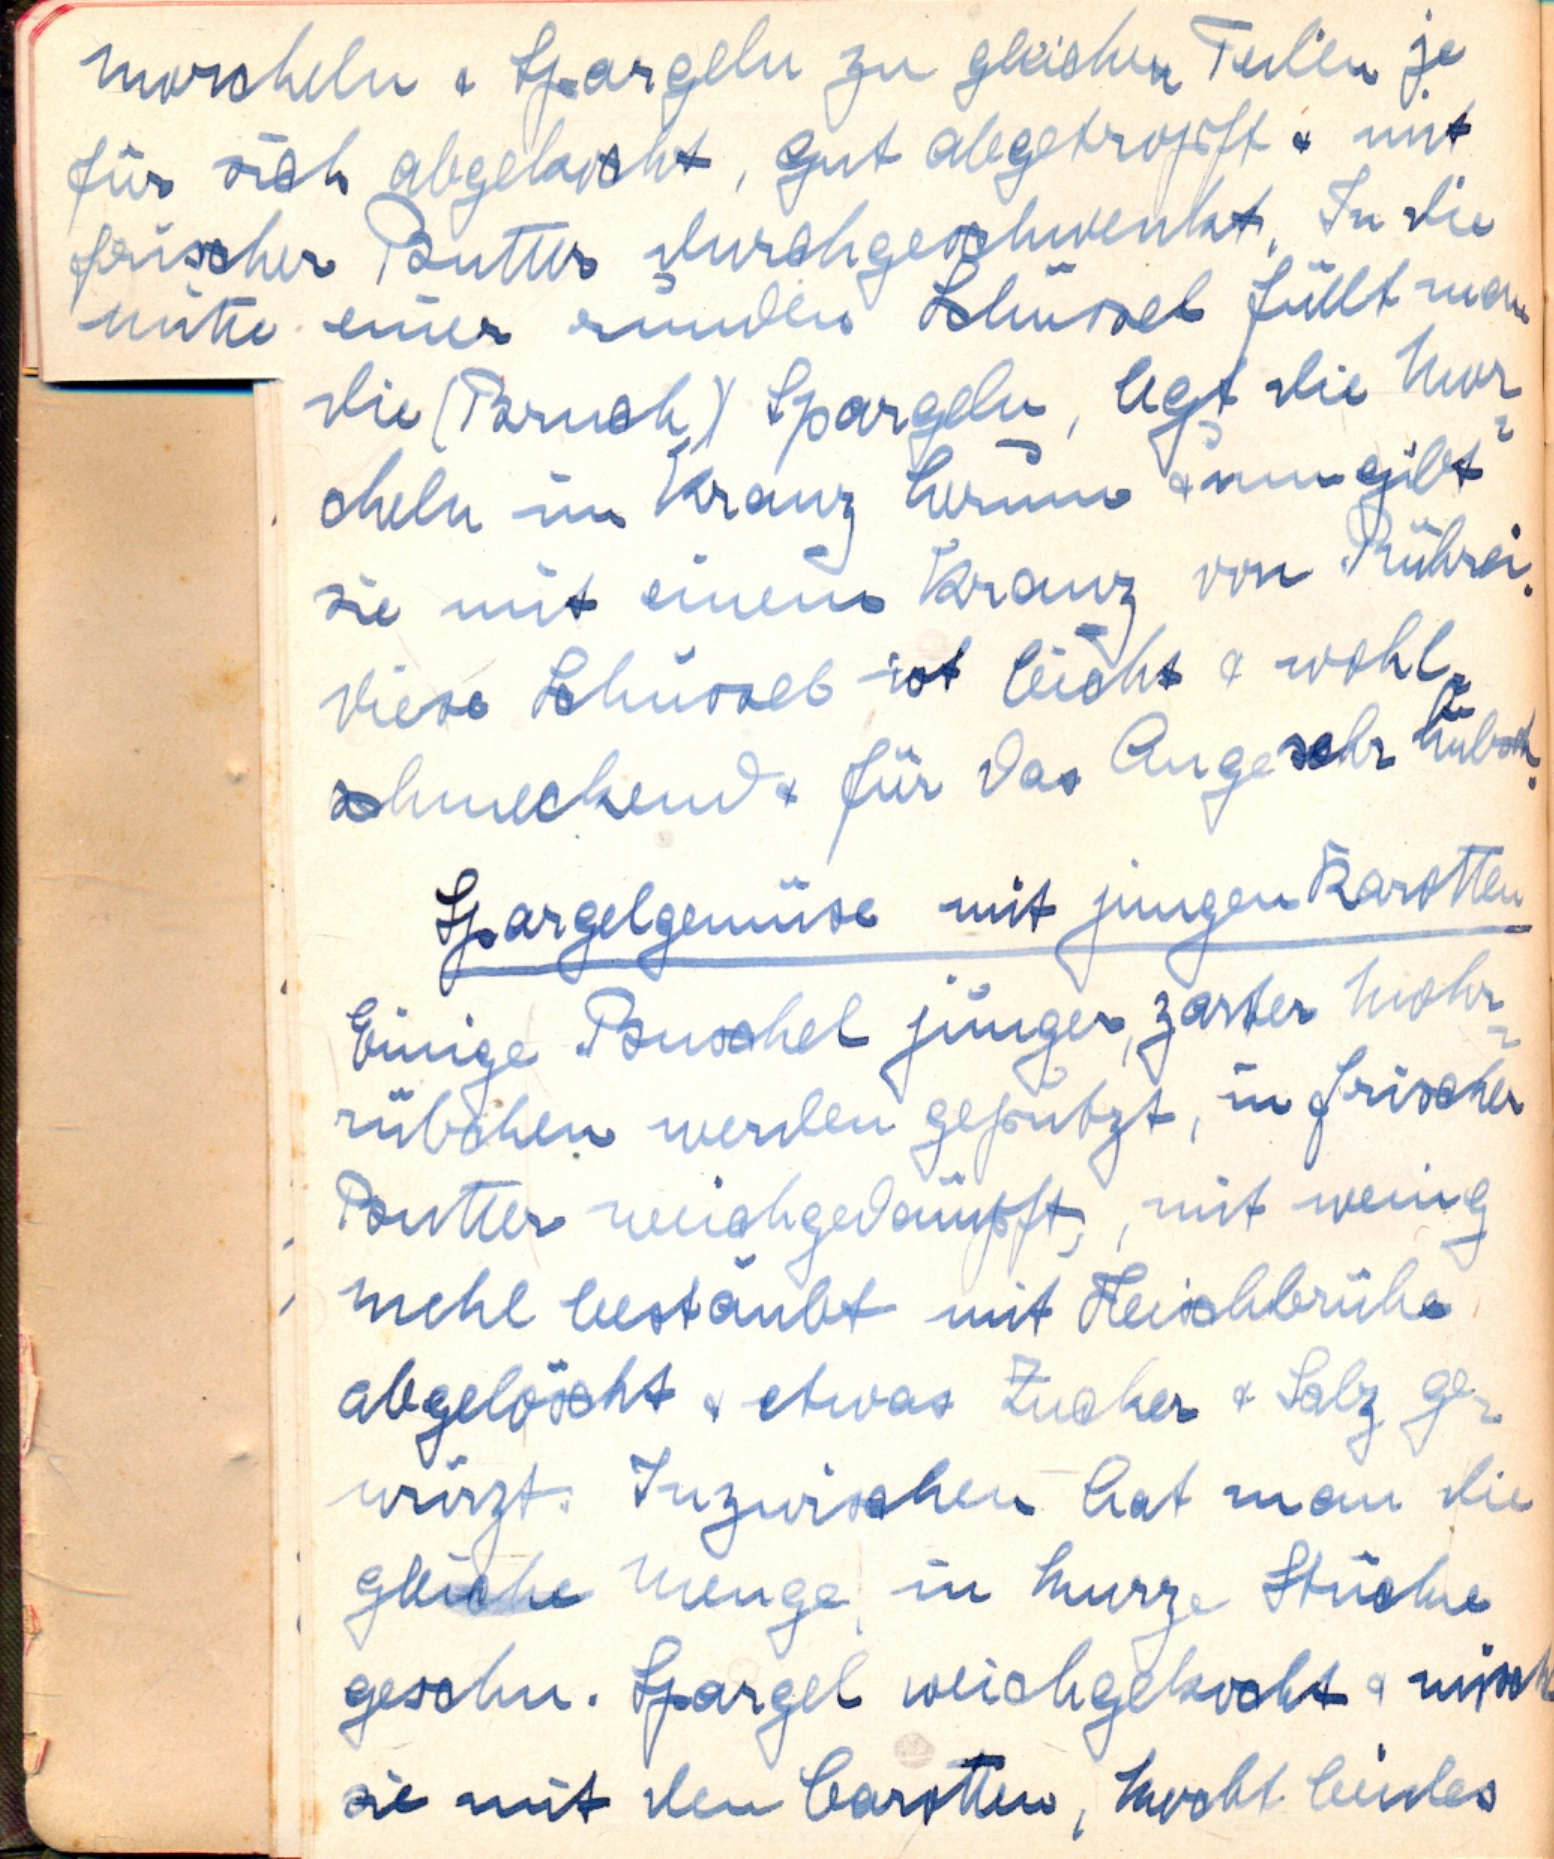 Morcheln & Spargeln zu gleichen Teilen je
für sich abgekocht, gut abgetropft & mit
frischer Butter durchgeschwenkt. In die
Mitte einer runden Schüssel füllt man
die (Bruch) Spargeln, legt die Mor-
cheln im Kranz herum & umgibt
sie mit einem Kranz von Rührei.
Diese Schüssel ist leicht & wohl-
schmeckend & für das Auge sehr hübsch.
Spargelgemüse mit jungen Karotten
Einige Buschel junger, zarter Mohr-
rübchen werden geputzt, in frischer
Butter weichgedämpft, mit wenig
Mehl bestäubt mit Fleischbrühe
abgelöscht & etwas Zucker & Salz ge-
würzt. Inzwischen hat man die
gleiche Menge, in kurze Stücke
geschn. Spargel weichgekocht & mischt
sie mit den Carotten, kocht beides